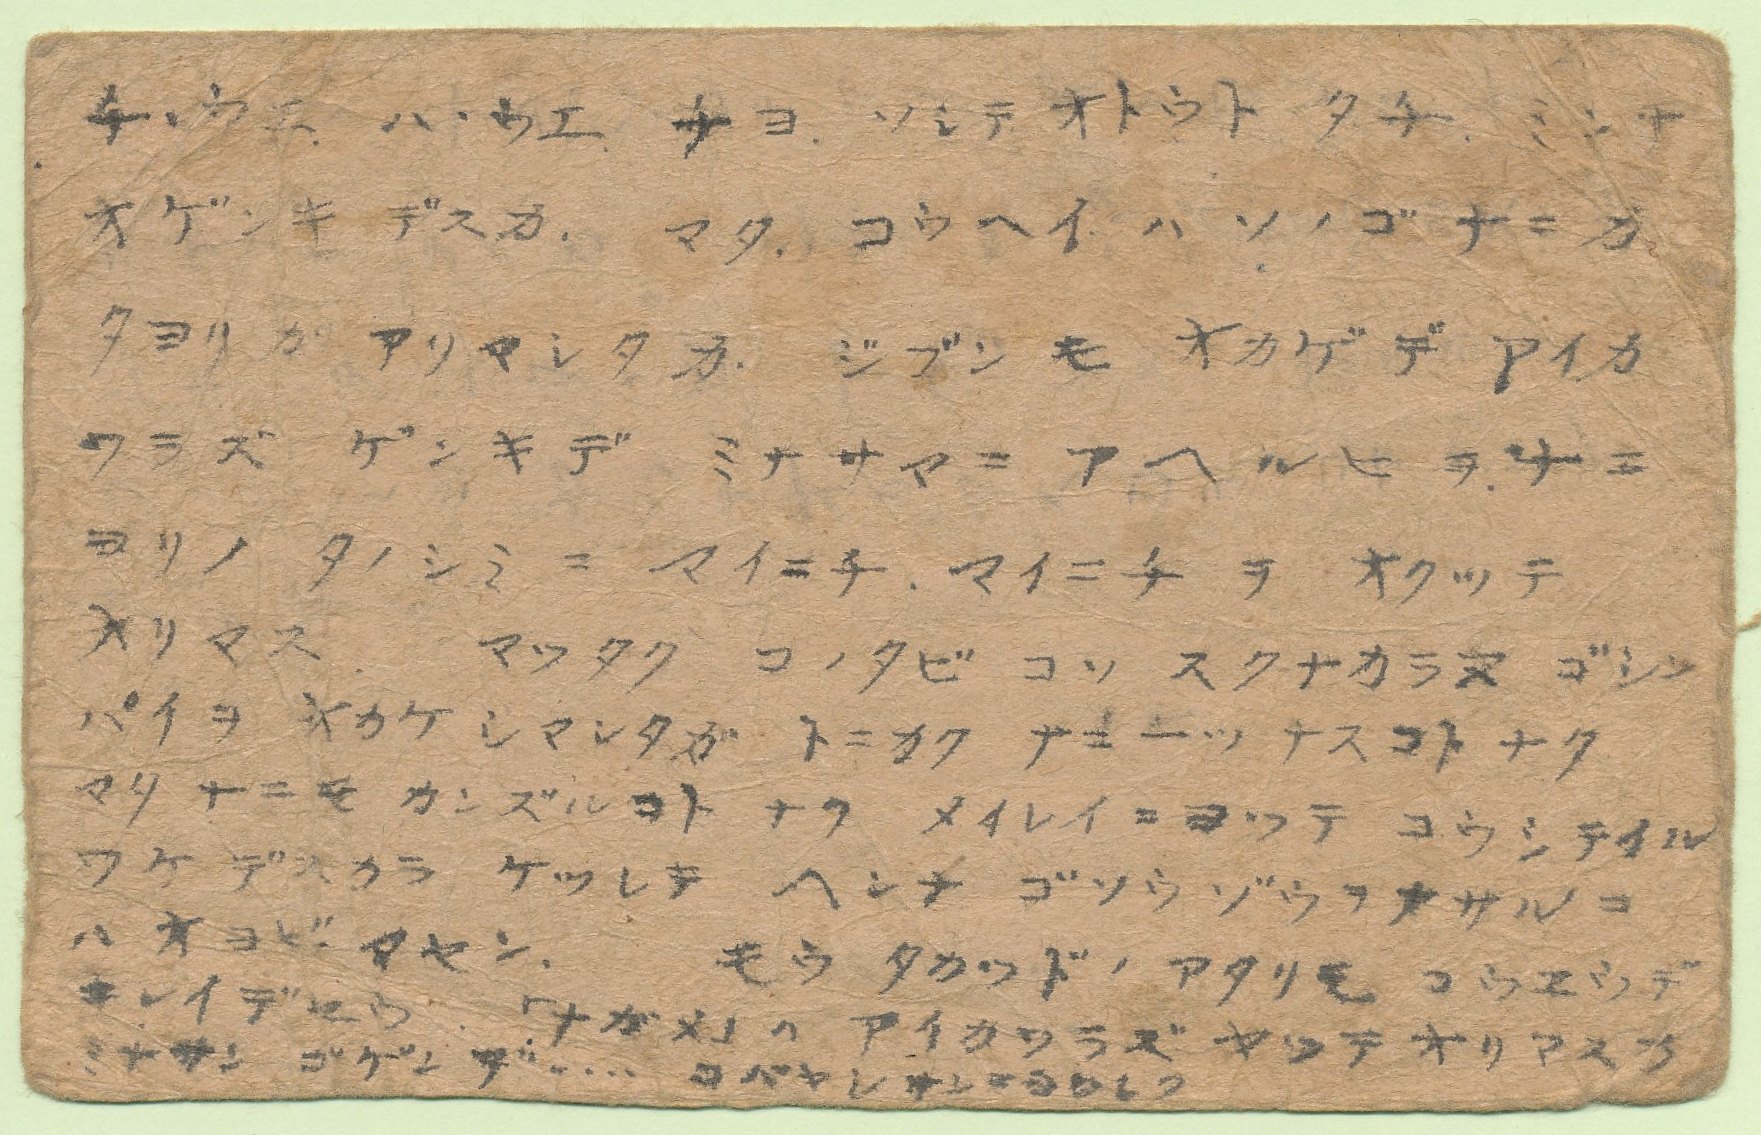 チヽウエ. ハヽウエ. ナヨ. ソシテ オトウト タチ. ミンナ
オゲンキ デスカ. マタ. コウヘイ ハ ソノゴ ナニカ
タヨリガ アリマシタカ. ジブンモ オカゲデ アイカ
ワラズ ゲンキデ ミナサマニ アヘルヒヲ. ナニ
ヨリノ タノシミニ マイニチ. マイニチヲ オクッテ
オリマス. マッタク コノタビ コソ スクナカラヌ ゴシン
パイヲ オカケ シマシタガ トニカク ナニ一ツ ナスコト ナク
マタ ナニモ カンズルコト ナク メイレイニヨッテ コウシテイル
ワケ デスカラ ケッシテ ヘンナ ゴソウゾウヲ ナサルニ
ハ オヨビ マセン. モウ タカツド ノ アタリモ コウエウデ
キレイデセウ. 「ナガメ」ハ アイカワラズ ヤッテ オリマスカ
ミナサン ゴゲンデ..... コバヤシサンニヨロシク